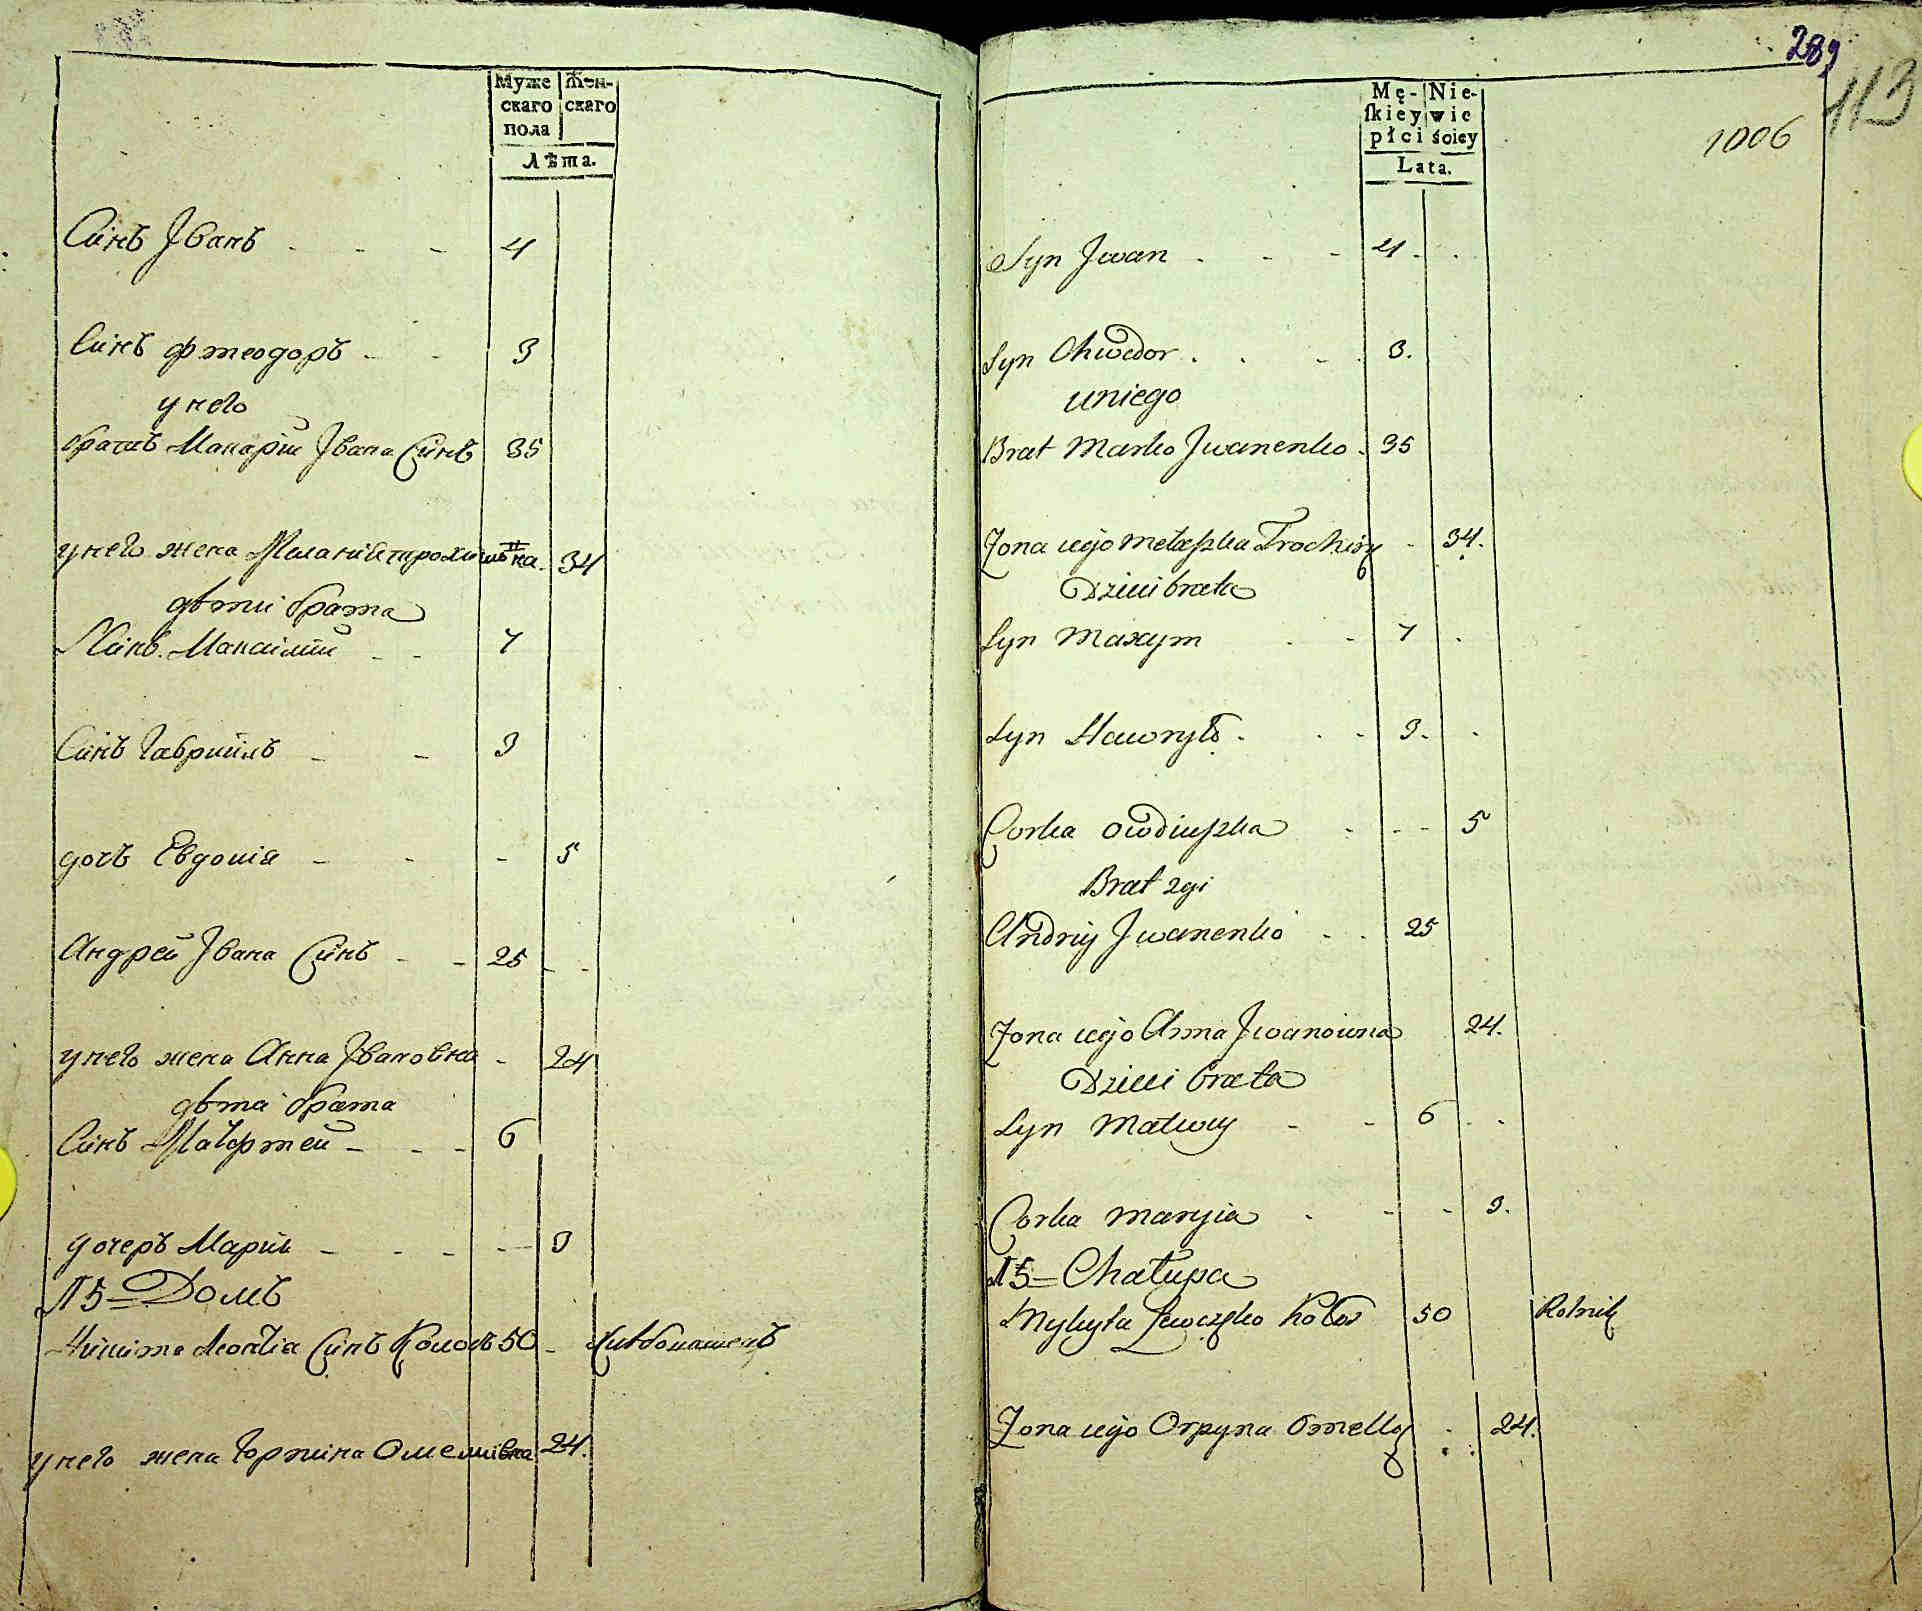 Муже Жен-
скаго скаго
пола
Лѣта.
Синъ Јванъ - - - 4
Синъ Фтеодоръ - - 3
у него
братъ Макарій Јвана Синъ 35
у него жена Меланія 34
дѣти брата
Синъ Максимій - - 7
Синъ Гавриилъ - - 3
дочъ Евдокія - - - 5
Андрей Јвана Синъ - - 25 - -
у него жена Анна Јвановна - 24
дѣти брата
Синъ Матфтей - - - 6
дочеръ Марія - - - - - 3
№ 5 = Домъ
Никита Леонтія Синъ 50 -
у него жена Горпина Омелиївна 24.
289
113
1006
Mę- Nie-
ſkiey wie
płci ściey
Lata.
Syn Jwan . - - 4. .
Syn Chwedor . . - . 3.
uniego
Brat Marko Jwanenko . 35
Żona iego Melaszka Trochim - 34.
Dzieci brata
Syn Maxym - - 7 .
Syn Hawryło . . - 3. .
Corka Owdiuszka - - - 5
Brat 2gi
Andriy Jwanenko - . 25
Żona iego Anna Jwanowna 24.
Dzieci brata
Syn Matwiy - - 6 . .
Corka Maryia - - - 3.
№ 5 = Chałupa
Mykyta Lewczko 50 Rolnik
Żona iego Orpyna Omelko . 24.